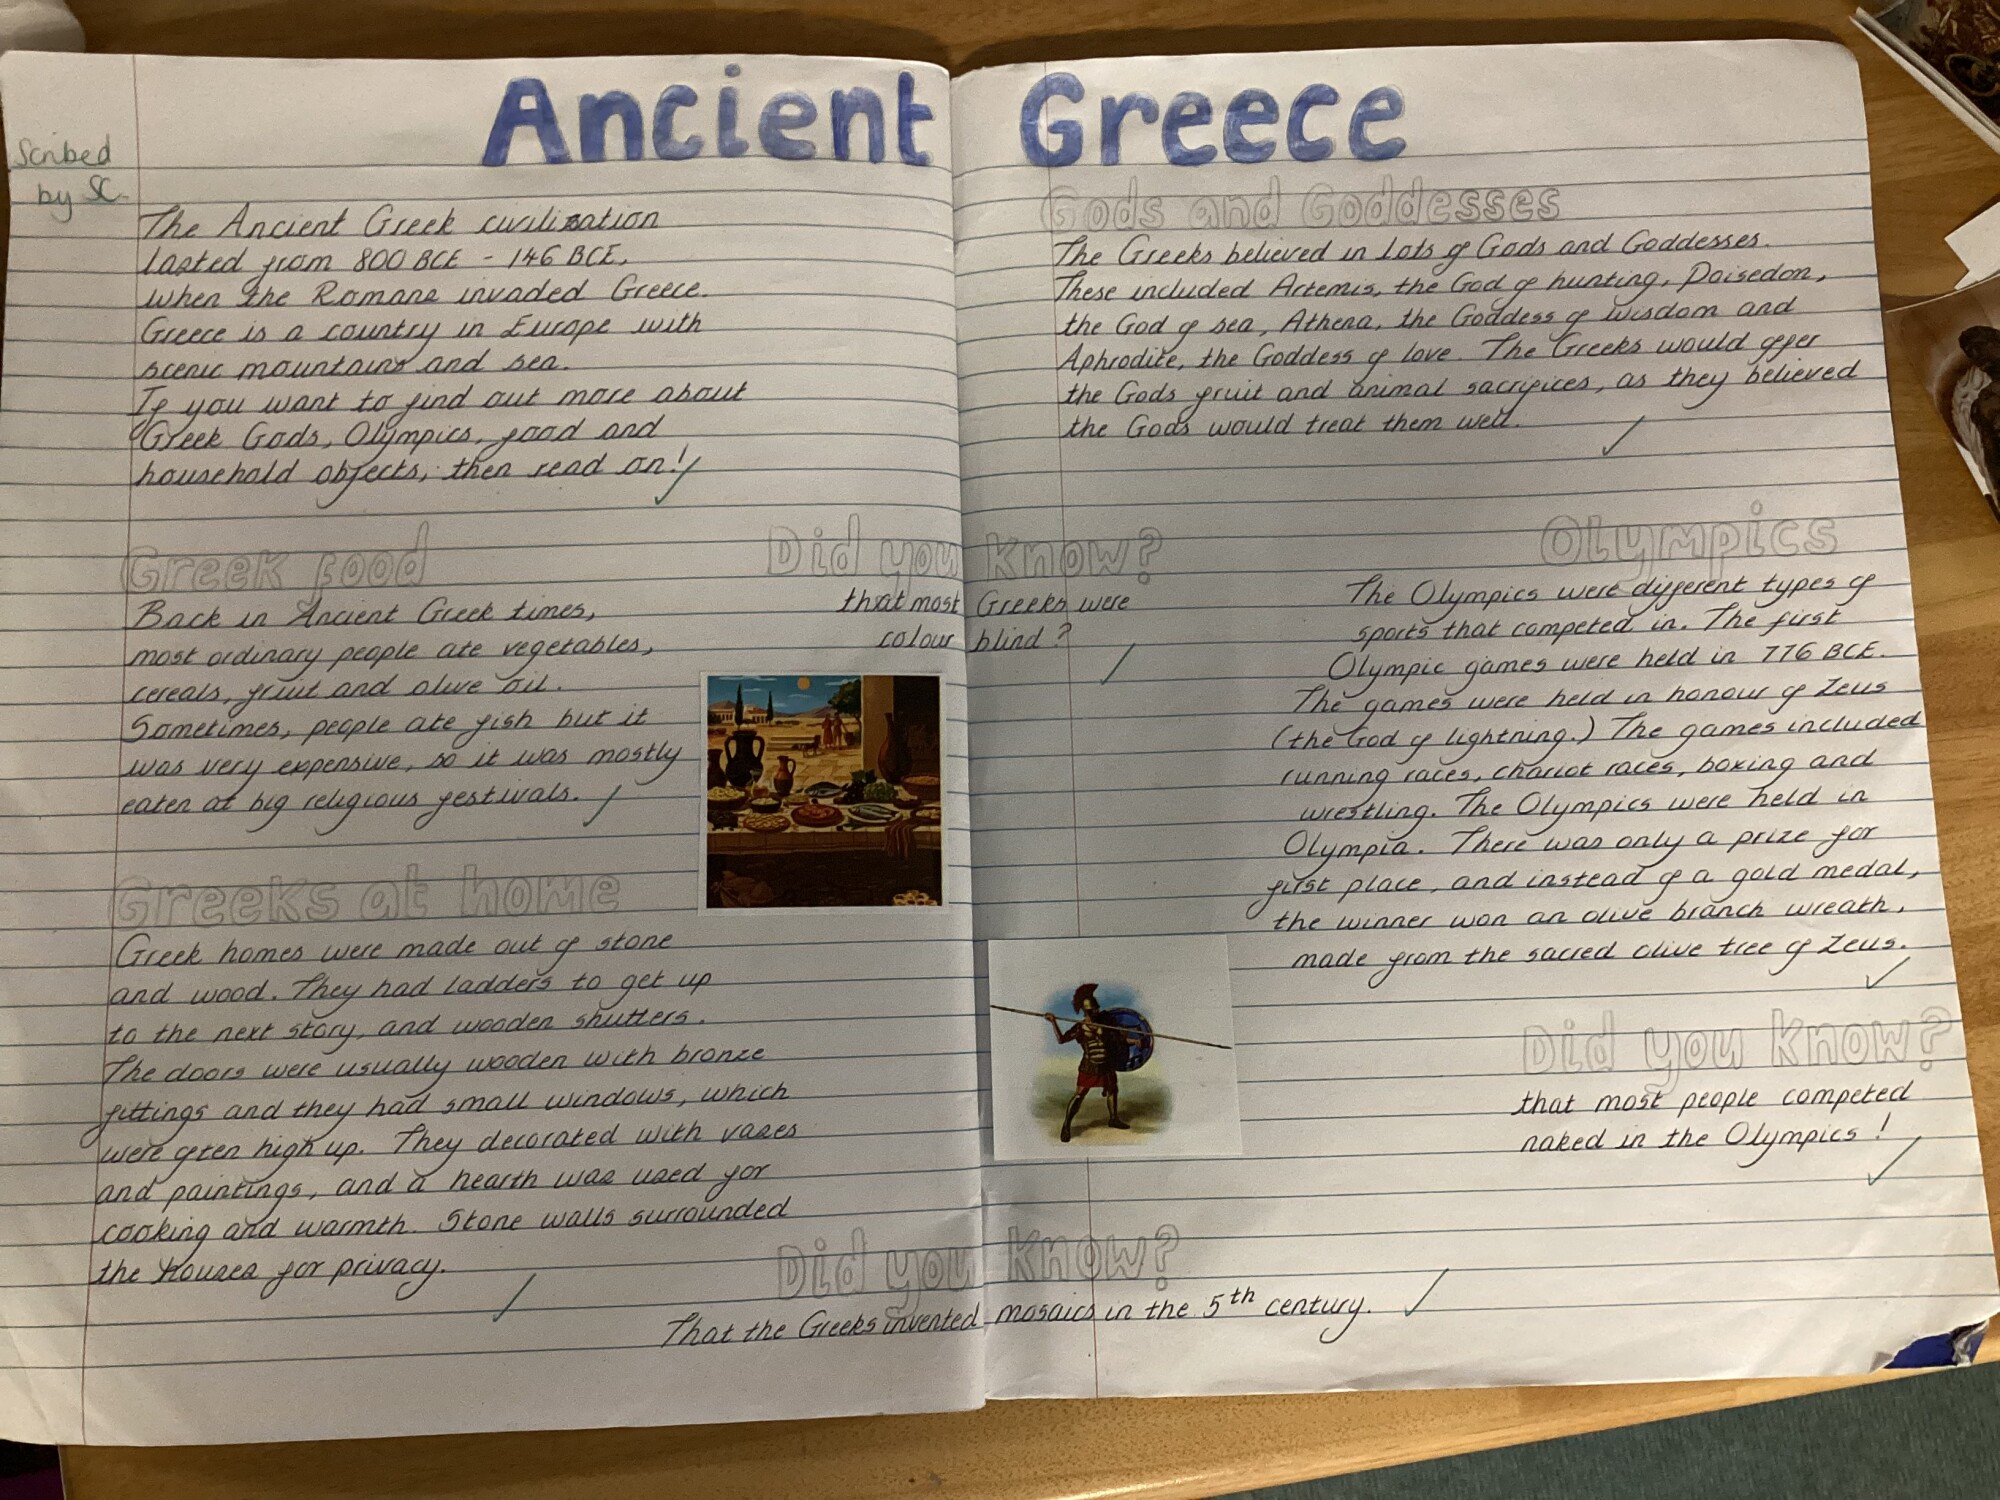 Ancient Greece
Scribed
by SC
The Ancient Greek civilization
lasted from 800 BCE - 146 BCE,
when the Romans invaded Greece.
Greece is a country in Europe with
scenic mountains and sea.
If you want to find out more about
Greek Gods, Olympics, food and
household objects, then read on!
Greek food
Back in Ancient Greek times,
most ordinary people ate vegetables,
cereals, fruit and olive oil.
Sometimes, people ate fish but it
was very expensive, so it was mostly
eaten at big religious festivals.
Greeks at home
Greek homes were made out of stone
and wood. They had ladders to get up
to the next story, and wooden shutters.
The doors were usually wooden with bronze
fittings and they had small windows, which
were often high up. They decorated with vases
and paintings, and a hearth was used for
cooking and warmth. Stone walls surrounded
the houses for privacy.
Did you know?
that most Greeks were
colour blind?
Gods and Goddesses
The Greeks believed in lots of Gods and Goddesses.
These included Artemis, the God of hunting, Poisedon,
the God of sea, Athena, the Goddess of wisdom and
Aphrodite, the Goddess of love. The Greeks would offer
the Gods fruit and animal sacrifices, as they believed
the Gods would treat them well.
Olympics
The Olympics were different types of
sports that competed in. The first
Olympic games were held in 776 BCE.
The games were held in honour of Zeus
(the God of lightning.) The games included
running races, chariot races, boxing and
wrestling. The Olympics were held in
Olympia. There was only a prize for
first place, and instead of a gold medal,
the winner won an olive branch wreath,
made from the sacred olive tree of Zeus.
Did you know?
that most people competed
naked in the Olympics!
Did you know?
That the Greeks invented mosaics in the 5th century.